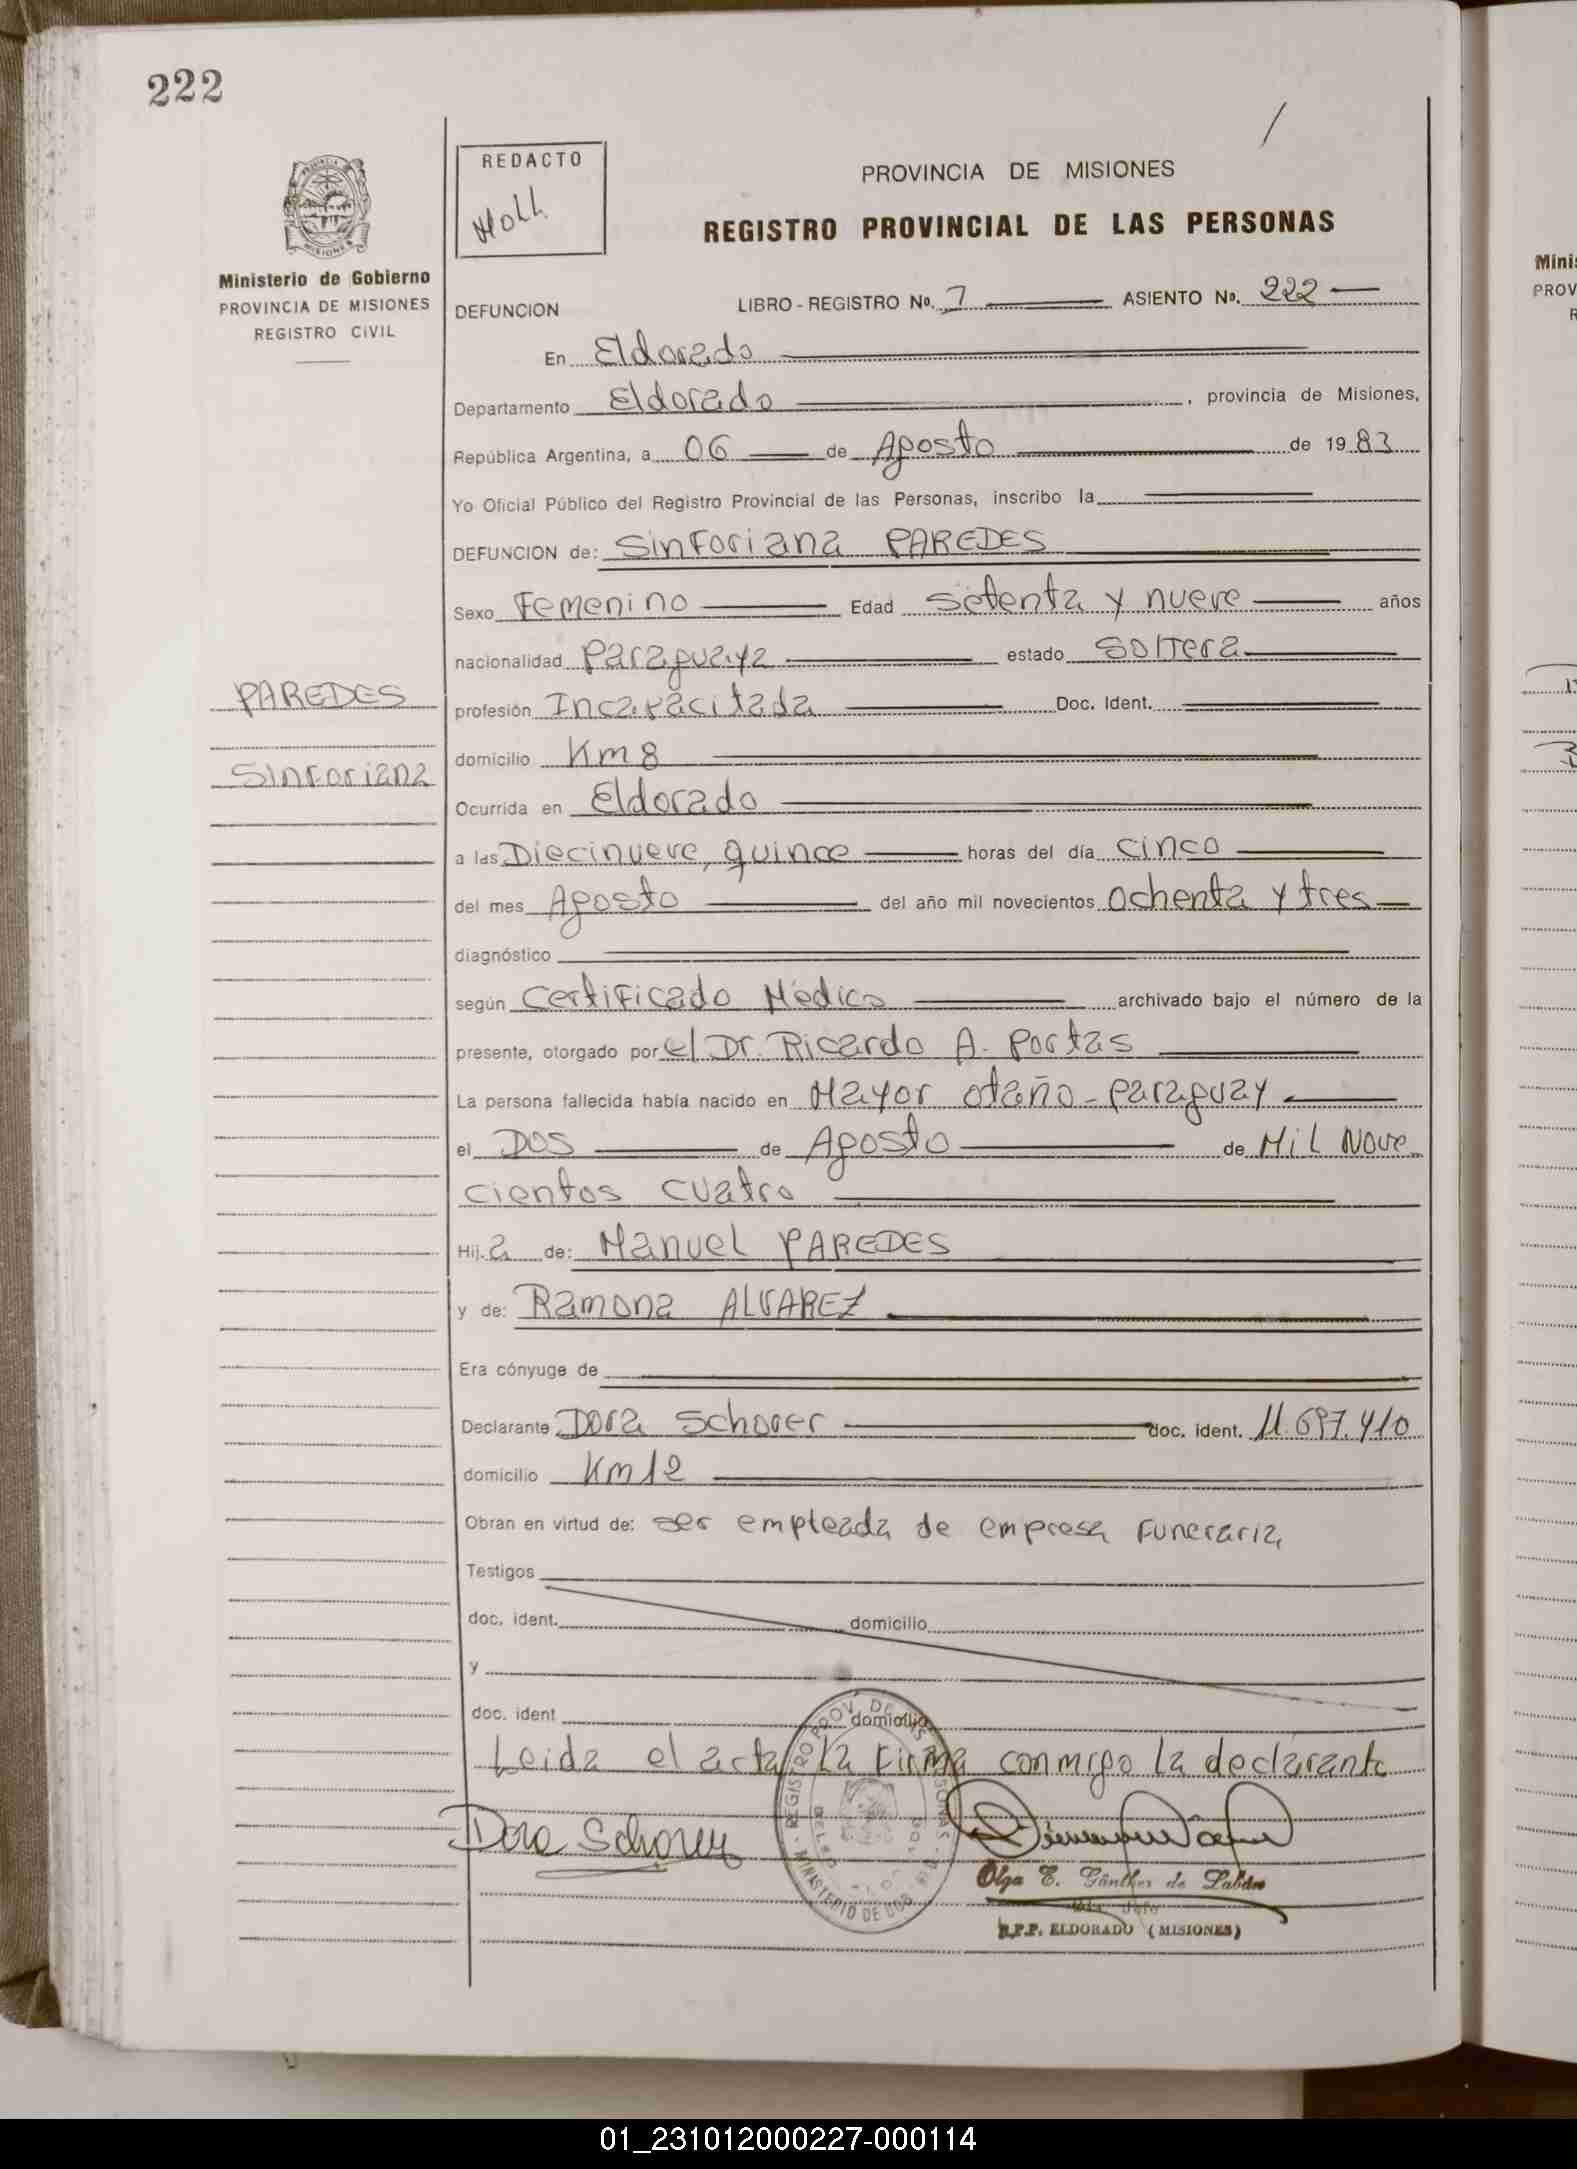 222
REDACTO
PROVINCIA DE MISIONES
REGISTRO PROVINCIAL DE LAS PERSONAS
Ministerio de Gobierno
PROVINCIA DE MISIONES
REGISTRO CIVIL
DEFUNCION LIBRO - REGISTRO Nº. 7 ASIENTO Nº. 222
En Eldorado
Departamento Eldorado, provincia de Misiones,
República Argentina, a 06 de Agosto de 1983
Yo Oficial Público del Registro Provincial de las Personas, inscribo la
DEFUNCION de: Sinforiana PAREDES
Sexo Femenino Edad setenta y nueve años
nacionalidad Paraguaya estado Soltera
PAREDES
Sinforiana
profesión Incapacitada Doc. Ident.
domicilio Km 8
Ocurrida en Eldorado
a las Diecinueve, quince horas del día cinco
del mes Agosto del año mil novecientos Ochenta y tres
diagnóstico
según Certificado Médico archivado bajo el número de la
presente, otorgado por el Dr. Ricardo A. Portas
La persona fallecida había nacido en Mayor Otaño - Paraguay
el Dos de Agosto de Mil Nove
cientos cuatro
Hij a de: Manuel PAREDES
y de: Ramona ALVAREZ
Era cónyuge de
Declarante Dora Schorer doc. ident. 11.697.410
domicilio Km 12
Obran en virtud de: ser empleada de empresa Funeraria
Testigos
doc. ident. domicilio
y
doc. ident domicilio
Leida el acta La Firma conmigo La declarante
Dora Schorer
Olga E. Günther de
R.P.P. ELDORADO (MISIONES)
Mini
PROV
R
01_231012000227-000114